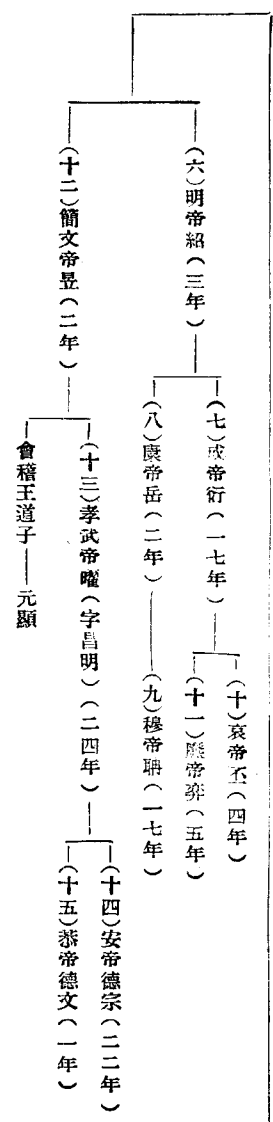 （六）明帝紹（三年）
（七）成帝衍（一七年）
（十）哀帝丕（四年）
（十一）廢帝奕（五年）
（八）康帝岳（二年）
（九）穆帝聃（一七年）
（十二）簡文帝昱（二年）
（十三）孝武帝曜（字昌明）（二四年）
（十四）安帝德宗（二二年）
（十五）恭帝德文（一年）
會稽王道子——元顯